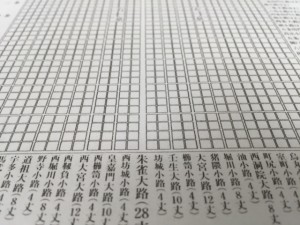 烏
室
町尻小路(4丈)
西洞院大路(8丈)
油小路(4丈)
堀川小路(8丈)
猪隈小路(4丈)
大宮大路(12丈)
櫛笥小路(4丈)
壬生大路(10丈)
坊城小路(4丈)
朱雀大路 28丈
西坊城小路(4丈)
皇嘉門大路(10丈)
西櫛笥小路(4丈)
西大宮大路(12丈)
西靱負小路(4丈)
西堀川小路(8丈)
野寺小路(4丈)
道祖大路(8丈)
宇多小路(4丈)
馬